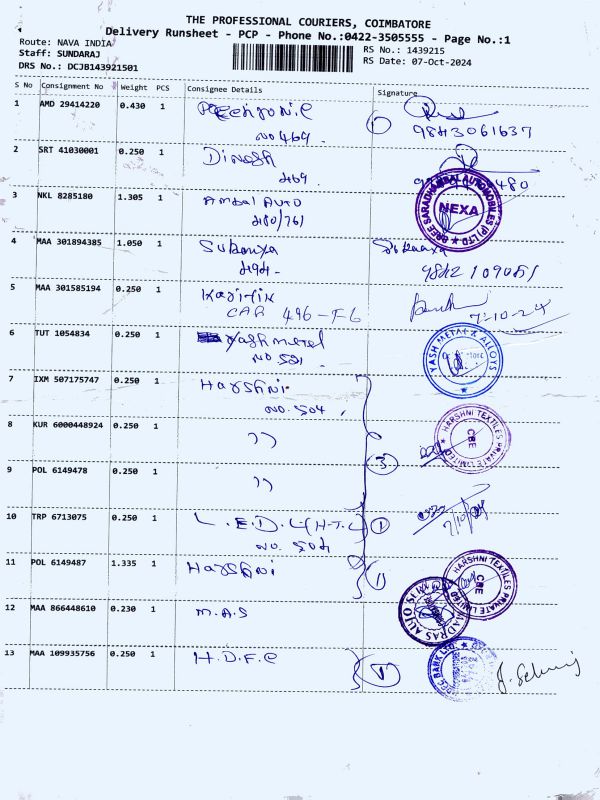 THE PROFESSIONAL COURIERS, COIMBATORE
Delivery Runsheet - PCP - Phone No.:0422-3505555 - Page No.:1
Route: NAVA INDIA
Staff: SUNDARAJ
DRS No.: DCJB143921501
RS No.: 1439215
RS Date: 07-Oct-2024
S No Consignment No Weight PCS Consignee Details Signature
1 AMD 29414220 0.430 1
No 469.
1
9843061637
2 SRT 41030001 0.250 1 Dinesh
469
480
3 NKL 8285180 1.305 1 Ambal Auto
480/761
SREE SARADHAMBAL AUTOMOBILES (P) LTD
NEXA
4 MAA 301894385 1.050 1 Sukanya Sukanya
5 MAA 301585194 0.250 1 Karthik
CAR 496-F6
7-10-24
6 TUT 1054834 0.250 1 yash metal
No. 521
YASH METALS & ALLOYS
7 IXM 507175747 0.250 1 Harshni
No. 504
HARSHNI TEXTILES PRIVATE LIMITED
CBE
8 KUR 6000448924 0.250 1 ))
3
9 POL 6149478 0.250 1 ))
10 TRP 6713075 0.250 1 L.E.D.L(H.T.L) 1
No. 504
7/10/24
11 POL 6149487 1.335 1 Harshni 1
HARSHNI TEXTILES PRIVATE LIMITED
CBE
12 MAA 866448610 0.230 1 M.A.S
MADRAS AUTO
13 MAA 109935756 0.250 1 H.D.F.C 1
BANK LTD